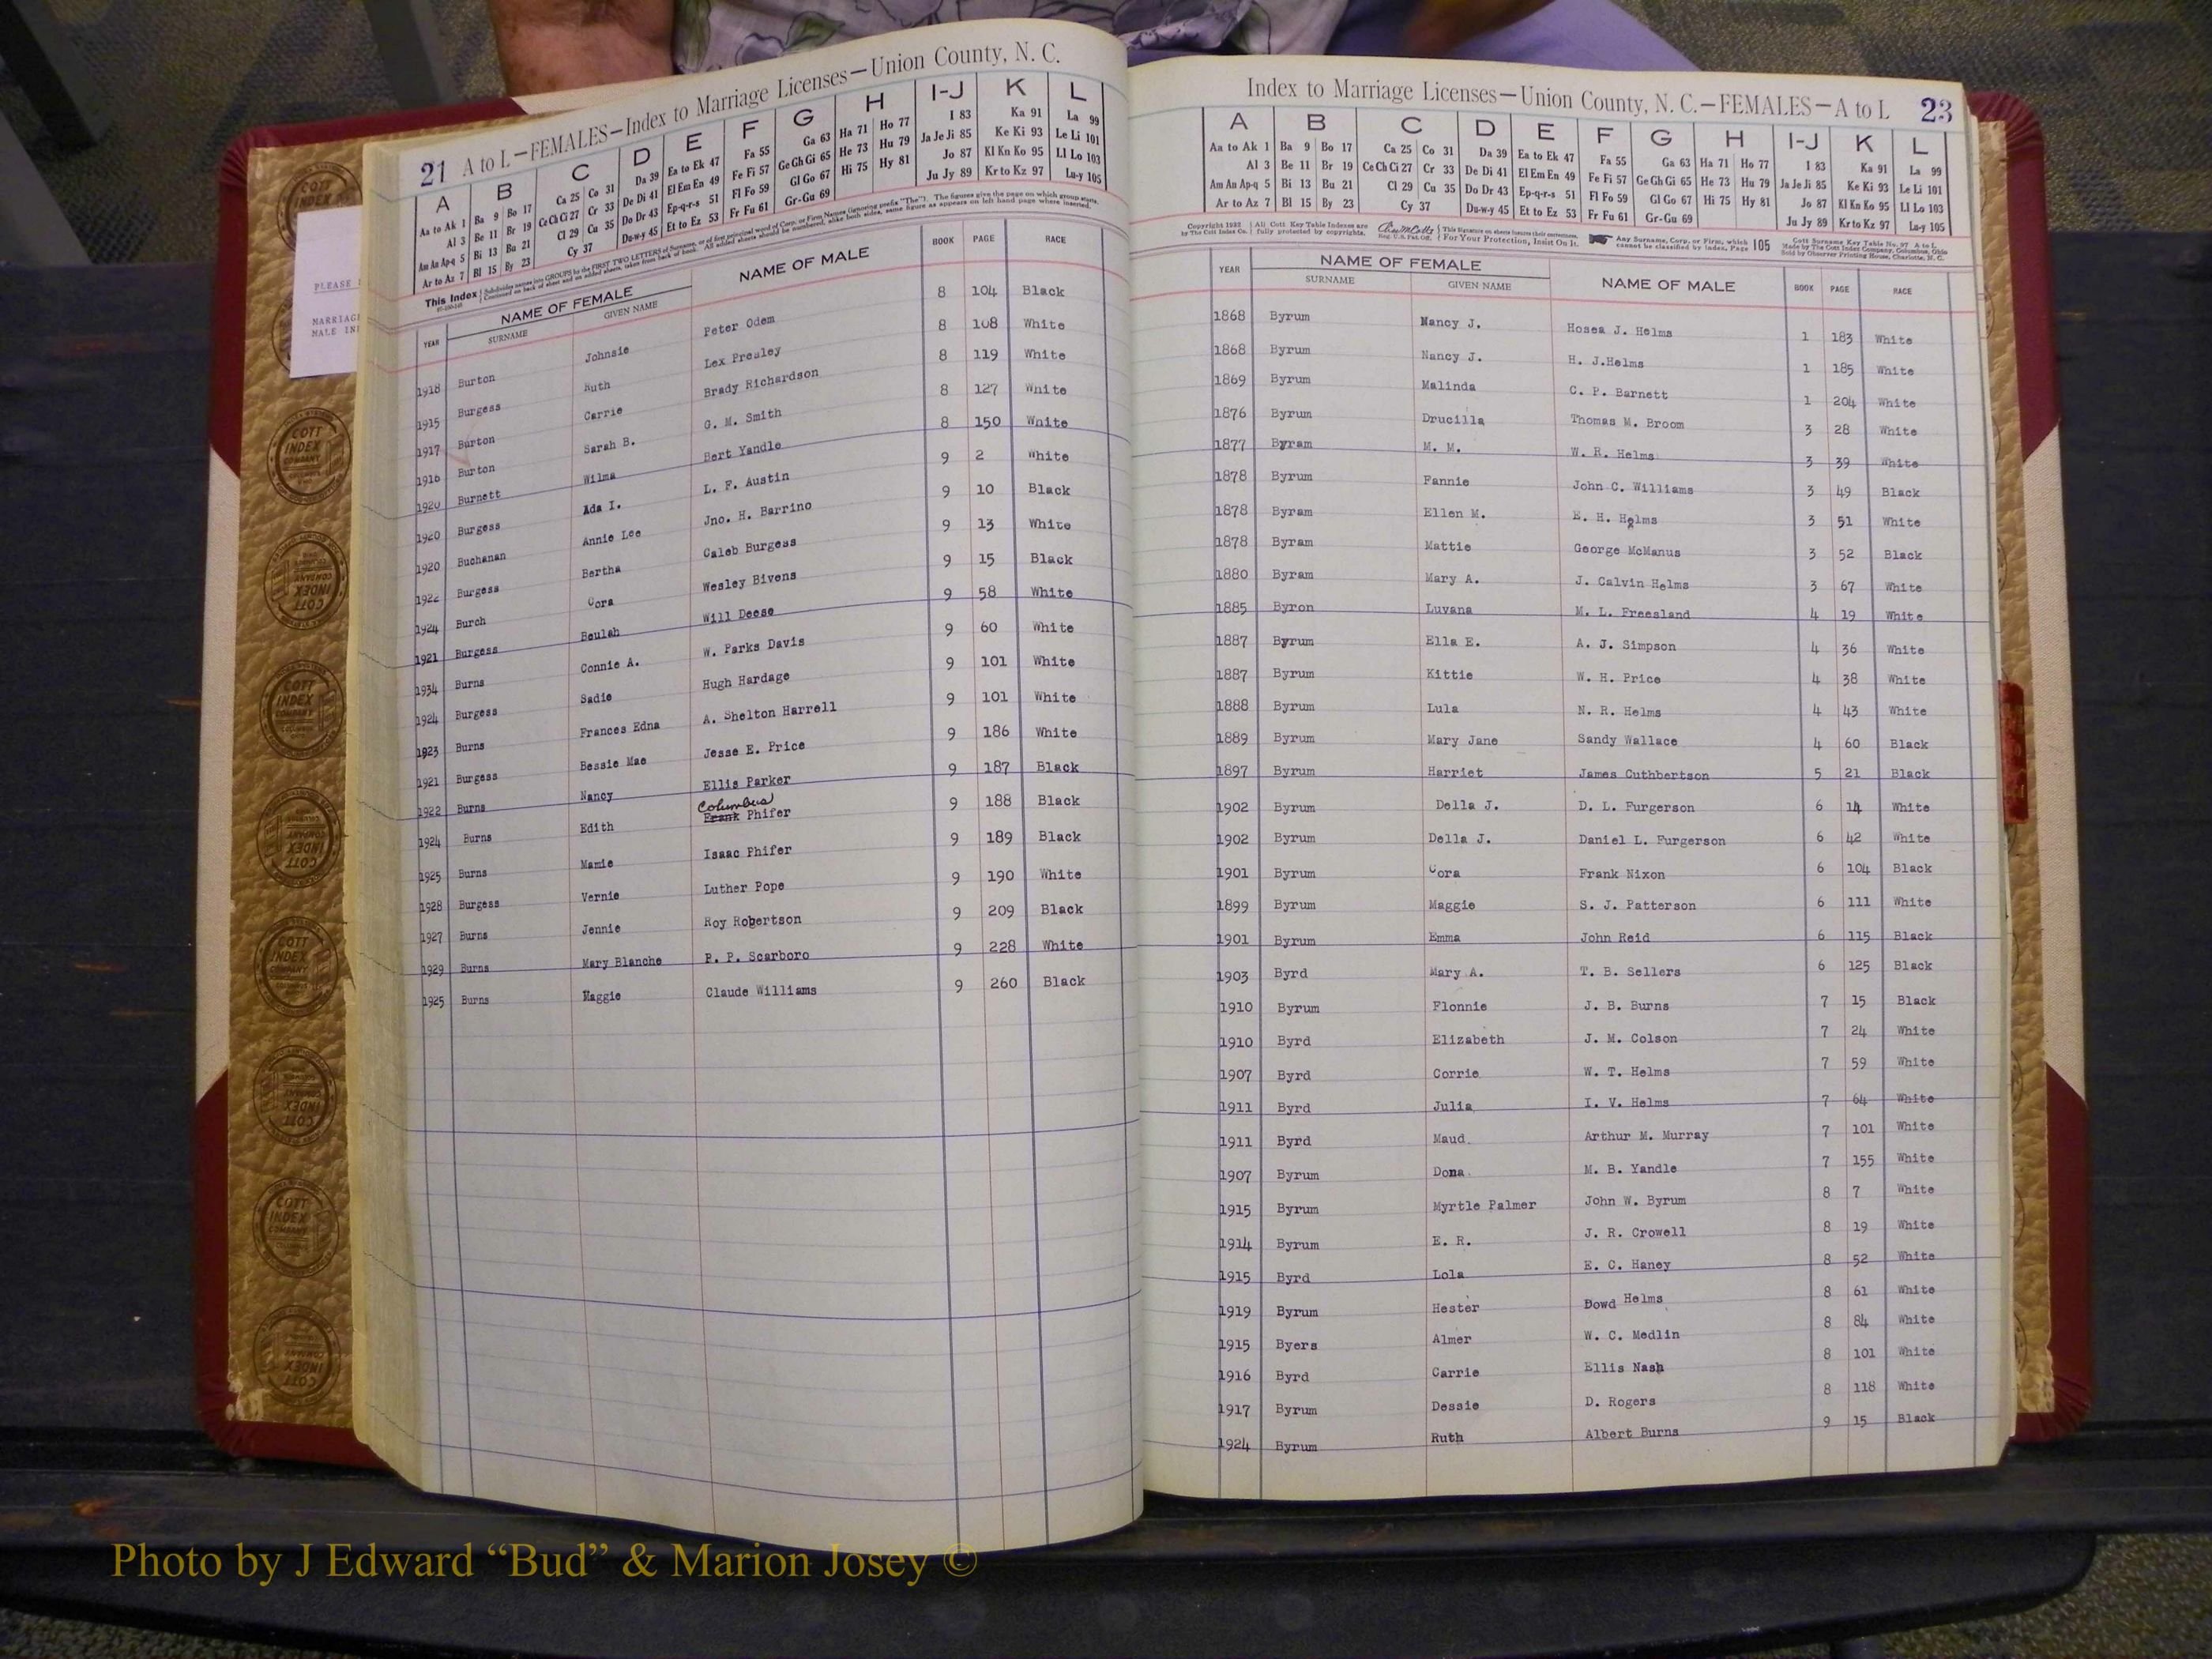 21 A to L—FEMALES—Index to Marriage Licenses—Union County, N. C.
A B C D E F G H I-J K L
Aa to Ak 1 Ba 9 Bo 17 Ca 25 Co 31 Da 39 Ea to Ek 47 Fa 55 Ga 63 Ha 71 Ho 77 I 83 Ka 91 La 99
Al 3 Be 11 Br 19 Ce Ch Ci 27 Cr 33 De Di 41 El Em En 49 Fe Fi 57 Ge Gh Gi 65 He 73 Hu 79 Ja Je Ji 85 Ke Ki 93 Le Li 101
Am An Ap-q 5 Bi 13 Bu 21 Cl 29 Cu 35 Do Dr 43 Ep-q-r-s 51 Fl Fo 59 Gl Go 67 Hi 75 Hy 81 Jo 87 Kl Kn Ko 95 Ll Lo 103
Ar to Az 7 Bl 15 By 23 Cy 37 Du-w-y 45 Et to Ez 53 Fr Fu 61 Gr-Gu 69 Ju Jy 89 Kr to Kz 97 Lu-y 105
This Index
YEAR NAME OF FEMALE NAME OF MALE BOOK PAGE RACE
SURNAME GIVEN NAME
1918 Burton Johnsie Peter Odem 8 104 Black
1915 Burgess Ruth Lex Presley 8 108 White
1917 Burton Carrie Brady Richardson 8 119 White
1916 Burton Sarah B. G. M. Smith 8 127 White
1920 Burnett Wilma Bert Yandle 8 150 White
1920 Burgess Ada I. L. F. Austin 9 2 White
1920 Buchanan Annie Lee Jno. H. Barrino 9 10 Black
1922 Burgess Bertha Caleb Burgess 9 13 White
1924 Burch Cora Wesley Bivens 9 15 Black
1921 Burgess Beulah Will Deese 9 58 White
1934 Burns Connie A. W. Parks Davis 9 60 White
1924 Burgess Sadie Hugh Hardage 9 101 White
1923 Burns Frances Edna A. Shelton Harrell 9 101 White
1921 Burgess Bessie Mae Jesse E. Price 9 186 White
1922 Burns Nancy Ellis Parker 9 187 Black
Columbus
1924 Burns Edith Frank Phifer 9 188 Black
1925 Burns Mamie Isaac Phifer 9 189 Black
1928 Burgess Vernie Luther Pope 9 190 White
1927 Burns Jennie Roy Robertson 9 209 Black
1929 Burns Mary Blanche B. P. Scarboro 9 228 White
1925 Burns Maggie Claude Williams 9 260 Black
PLEASE
MARRIAGE
MALE IN
Index to Marriage Licenses—Union County, N. C.—FEMALES—A to L 23
A B C D E F G H I-J K L
Aa to Ak 1 Ba 9 Bo 17 Ca 25 Co 31 Da 39 Ea to Ek 47 Fa 55 Ga 63 Ha 71 Ho 77 I 83 Ka 91 La 99
Al 3 Be 11 Br 19 Ce Ch Ci 27 Cr 33 De Di 41 El Em En 49 Fe Fi 57 Ge Gh Gi 65 He 73 Hu 79 Ja Je Ji 85 Ke Ki 93 Le Li 101
Am An Ap-q 5 Bi 13 Bu 21 Cl 29 Cu 35 Do Dr 43 Ep-q-r-s 51 Fl Fo 59 Gl Go 67 Hi 75 Hy 81 Jo 87 Kl Kn Ko 95 Ll Lo 103
Ar to Az 7 Bl 15 By 23 Cy 37 Du-w-y 45 Et to Ez 53 Fr Fu 61 Gr-Gu 69 Ju Jy 89 Kr to Kz 97 Lu-y 105
Copyright 1932 All Cott Key Table Indexes are This Signature on sheets insures their correctness. Any Surname, Corp. or Firm, which 105 Cott Surname Key Table No. 97 A to L
by The Cott Index Co. fully protected by copyrights. For Your Protection, Insist On It. cannot be classified by index, Page Made by The Cott Index Company, Columbus, Ohio
Sold by Observer Printing House, Charlotte, N. C.
YEAR NAME OF FEMALE NAME OF MALE BOOK PAGE RACE
SURNAME GIVEN NAME
1868 Byrum Nancy J. Hosea J. Helms 1 183 White
1868 Byrum Nancy J. H. J.Helms 1 185 White
1869 Byrum Malinda C. P. Barnett 1 204 White
1876 Byrum Drucilla Thomas M. Broom 3 28 White
1877 Byram M. M. W. R. Helms 3 39 White
1878 Byrum Fannie John C. Williams 3 49 Black
1878 Byram Ellen M. E. H. Helms 3 51 White
1878 Byram Mattie George McManus 3 52 Black
1880 Byram Mary A. J. Calvin Helms 3 67 White
1885 Byron Luvana M. L. Freesland 4 19 White
1887 Byrum Ella E. A. J. Simpson 4 36 White
1887 Byrum Kittie W. H. Price 4 38 White
1888 Byrum Lula N. R. Helms 4 43 White
1889 Byrum Mary Jane Sandy Wallace 4 60 Black
1897 Byrum Harriet James Cuthbertson 5 21 Black
1902 Byrum Della J. D. L. Furgerson 6 14 White
1902 Byrum Della J. Daniel L. Furgerson 6 42 White
1901 Byrum Cora Frank Nixon 6 104 Black
1899 Byrum Maggie S. J. Patterson 6 111 White
1901 Byrum Emma John Reid 6 115 Black
1903 Byrd Mary A. T. B. Sellers 6 125 Black
1910 Byrum Flonnie J. B. Burns 7 15 Black
1910 Byrd Elizabeth J. M. Colson 7 24 White
1907 Byrd Corrie W. T. Helms 7 59 White
1911 Byrd Julia I. V. Helms 7 64 White
1911 Byrd Maud Arthur M. Murray 7 101 White
1907 Byrum Dona M. B. Yandle 7 155 White
1915 Byrum Myrtle Palmer John W. Byrum 8 7 White
1914 Byrum E. R. J. R. Crowell 8 19 White
1915 Byrd Lola E. C. Haney 8 52 White
1919 Byrum Hester Dowd Helms 8 61 White
1915 Byers Almer W. C. Medlin 8 84 White
1916 Byrd Carrie Ellis Nash 8 101 White
1917 Byrum Dessie D. Rogers 8 118 White
1924 Byrum Ruth Albert Burns 9 15 Black
COTT INDEX COMPANY
Photo by J Edward “Bud” & Marion Josey ©